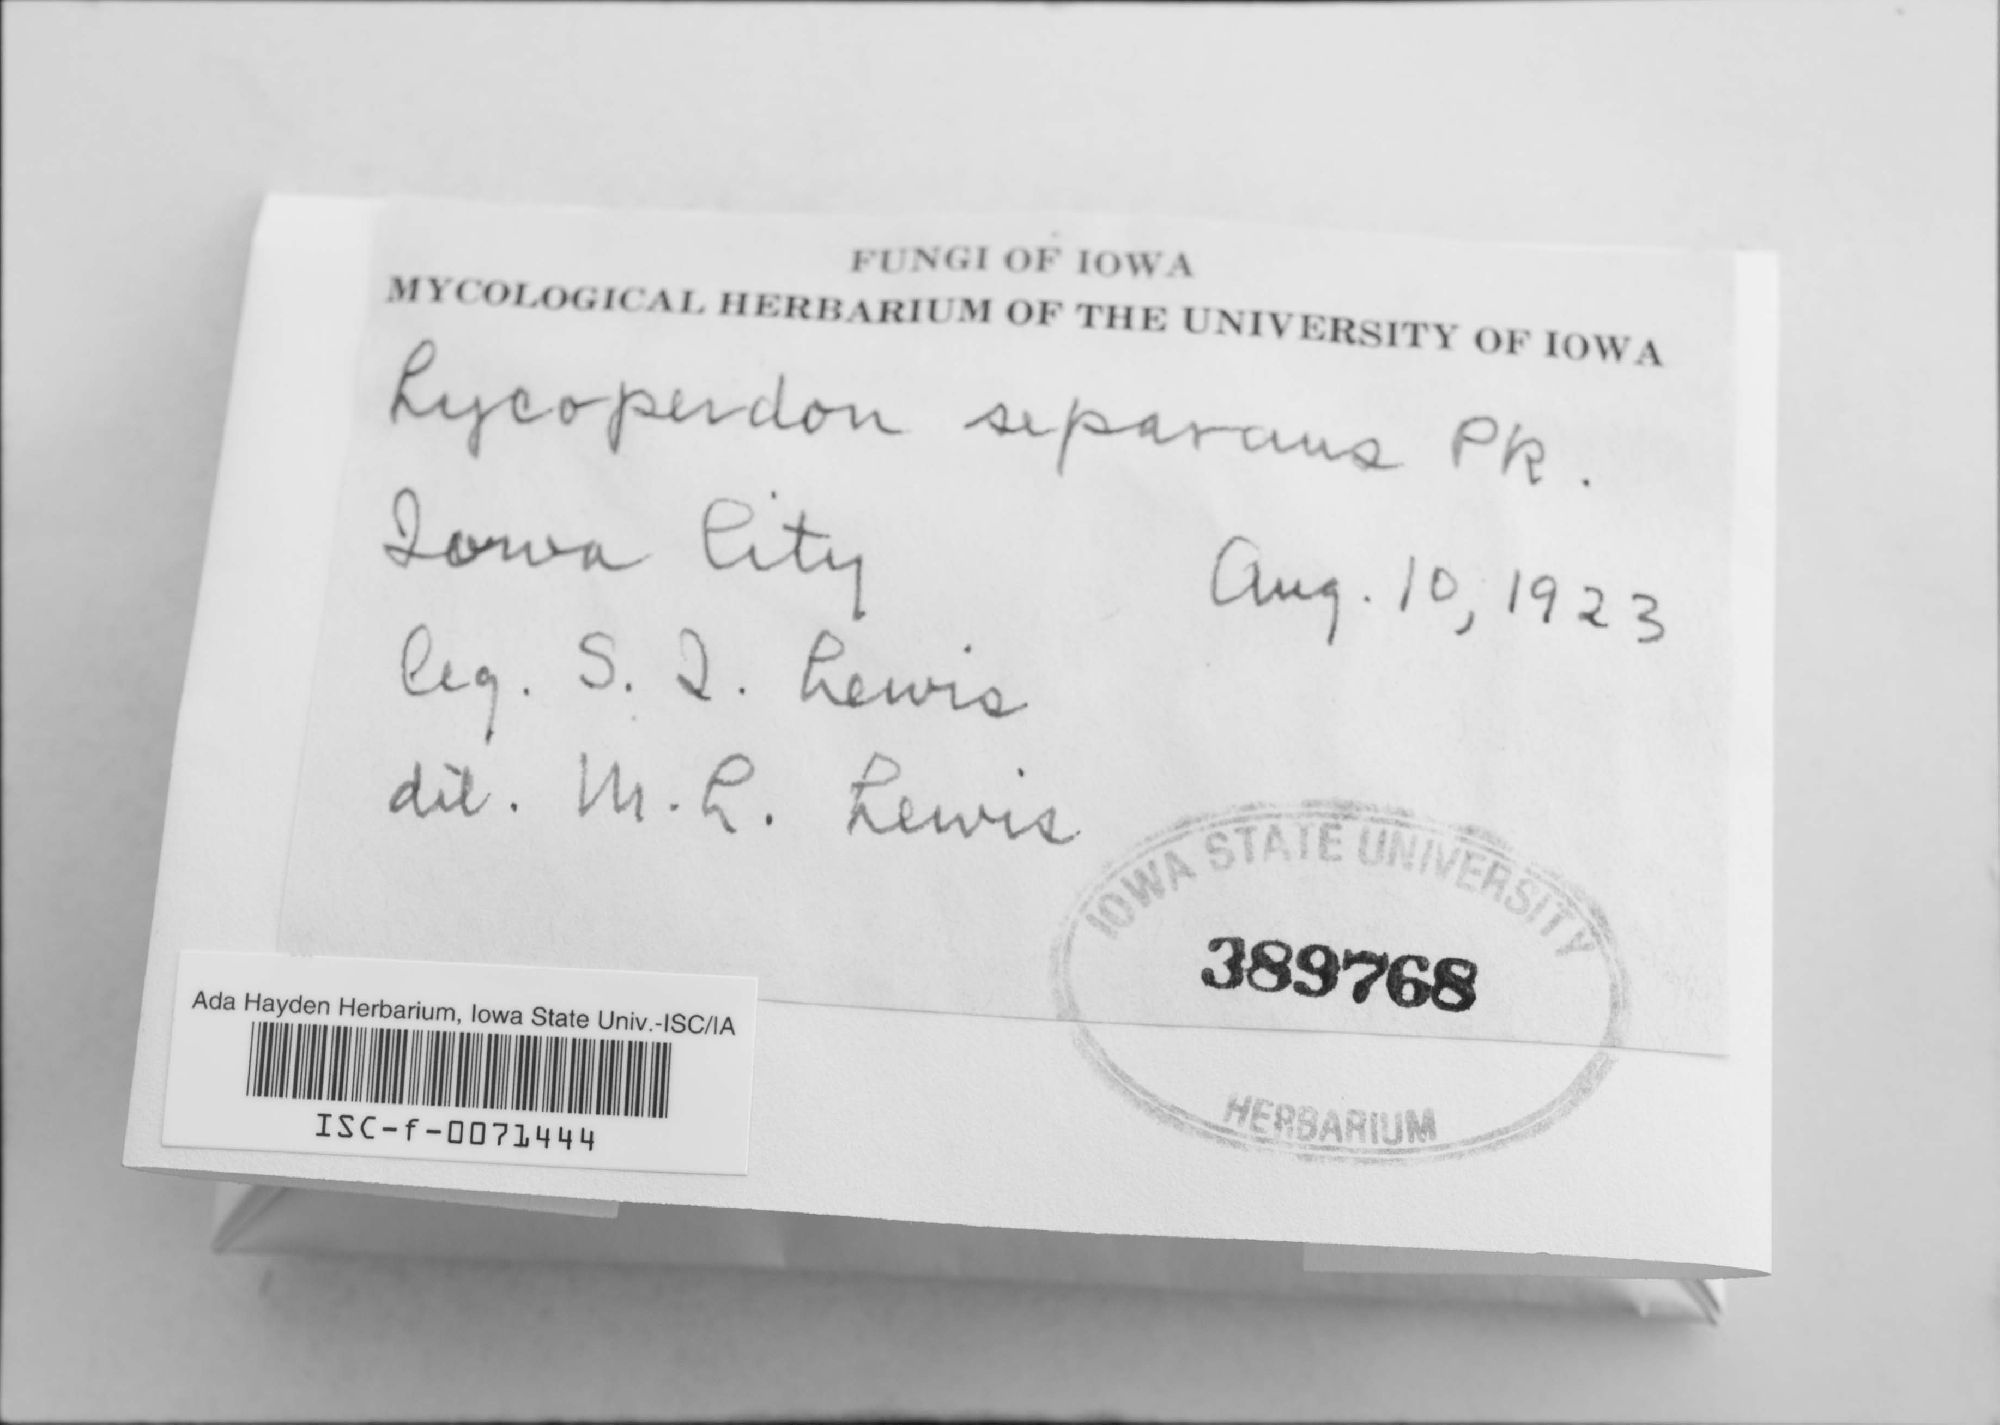 FUNGI OF IOWA
MYCOLOGICAL HERBARIUM OF THE UNIVERSITY OF IOWA
Lycoperdon separans Pk.
Iowa City
Aug. 10, 1923
leg. S. I. Lewis
det. M. L. Lewis
IOWA STATE UNIVERSITY
389768
HERBARIUM
Ada Hayden Herbarium, Iowa State Univ.-ISC/IA
ISC-f-0071444